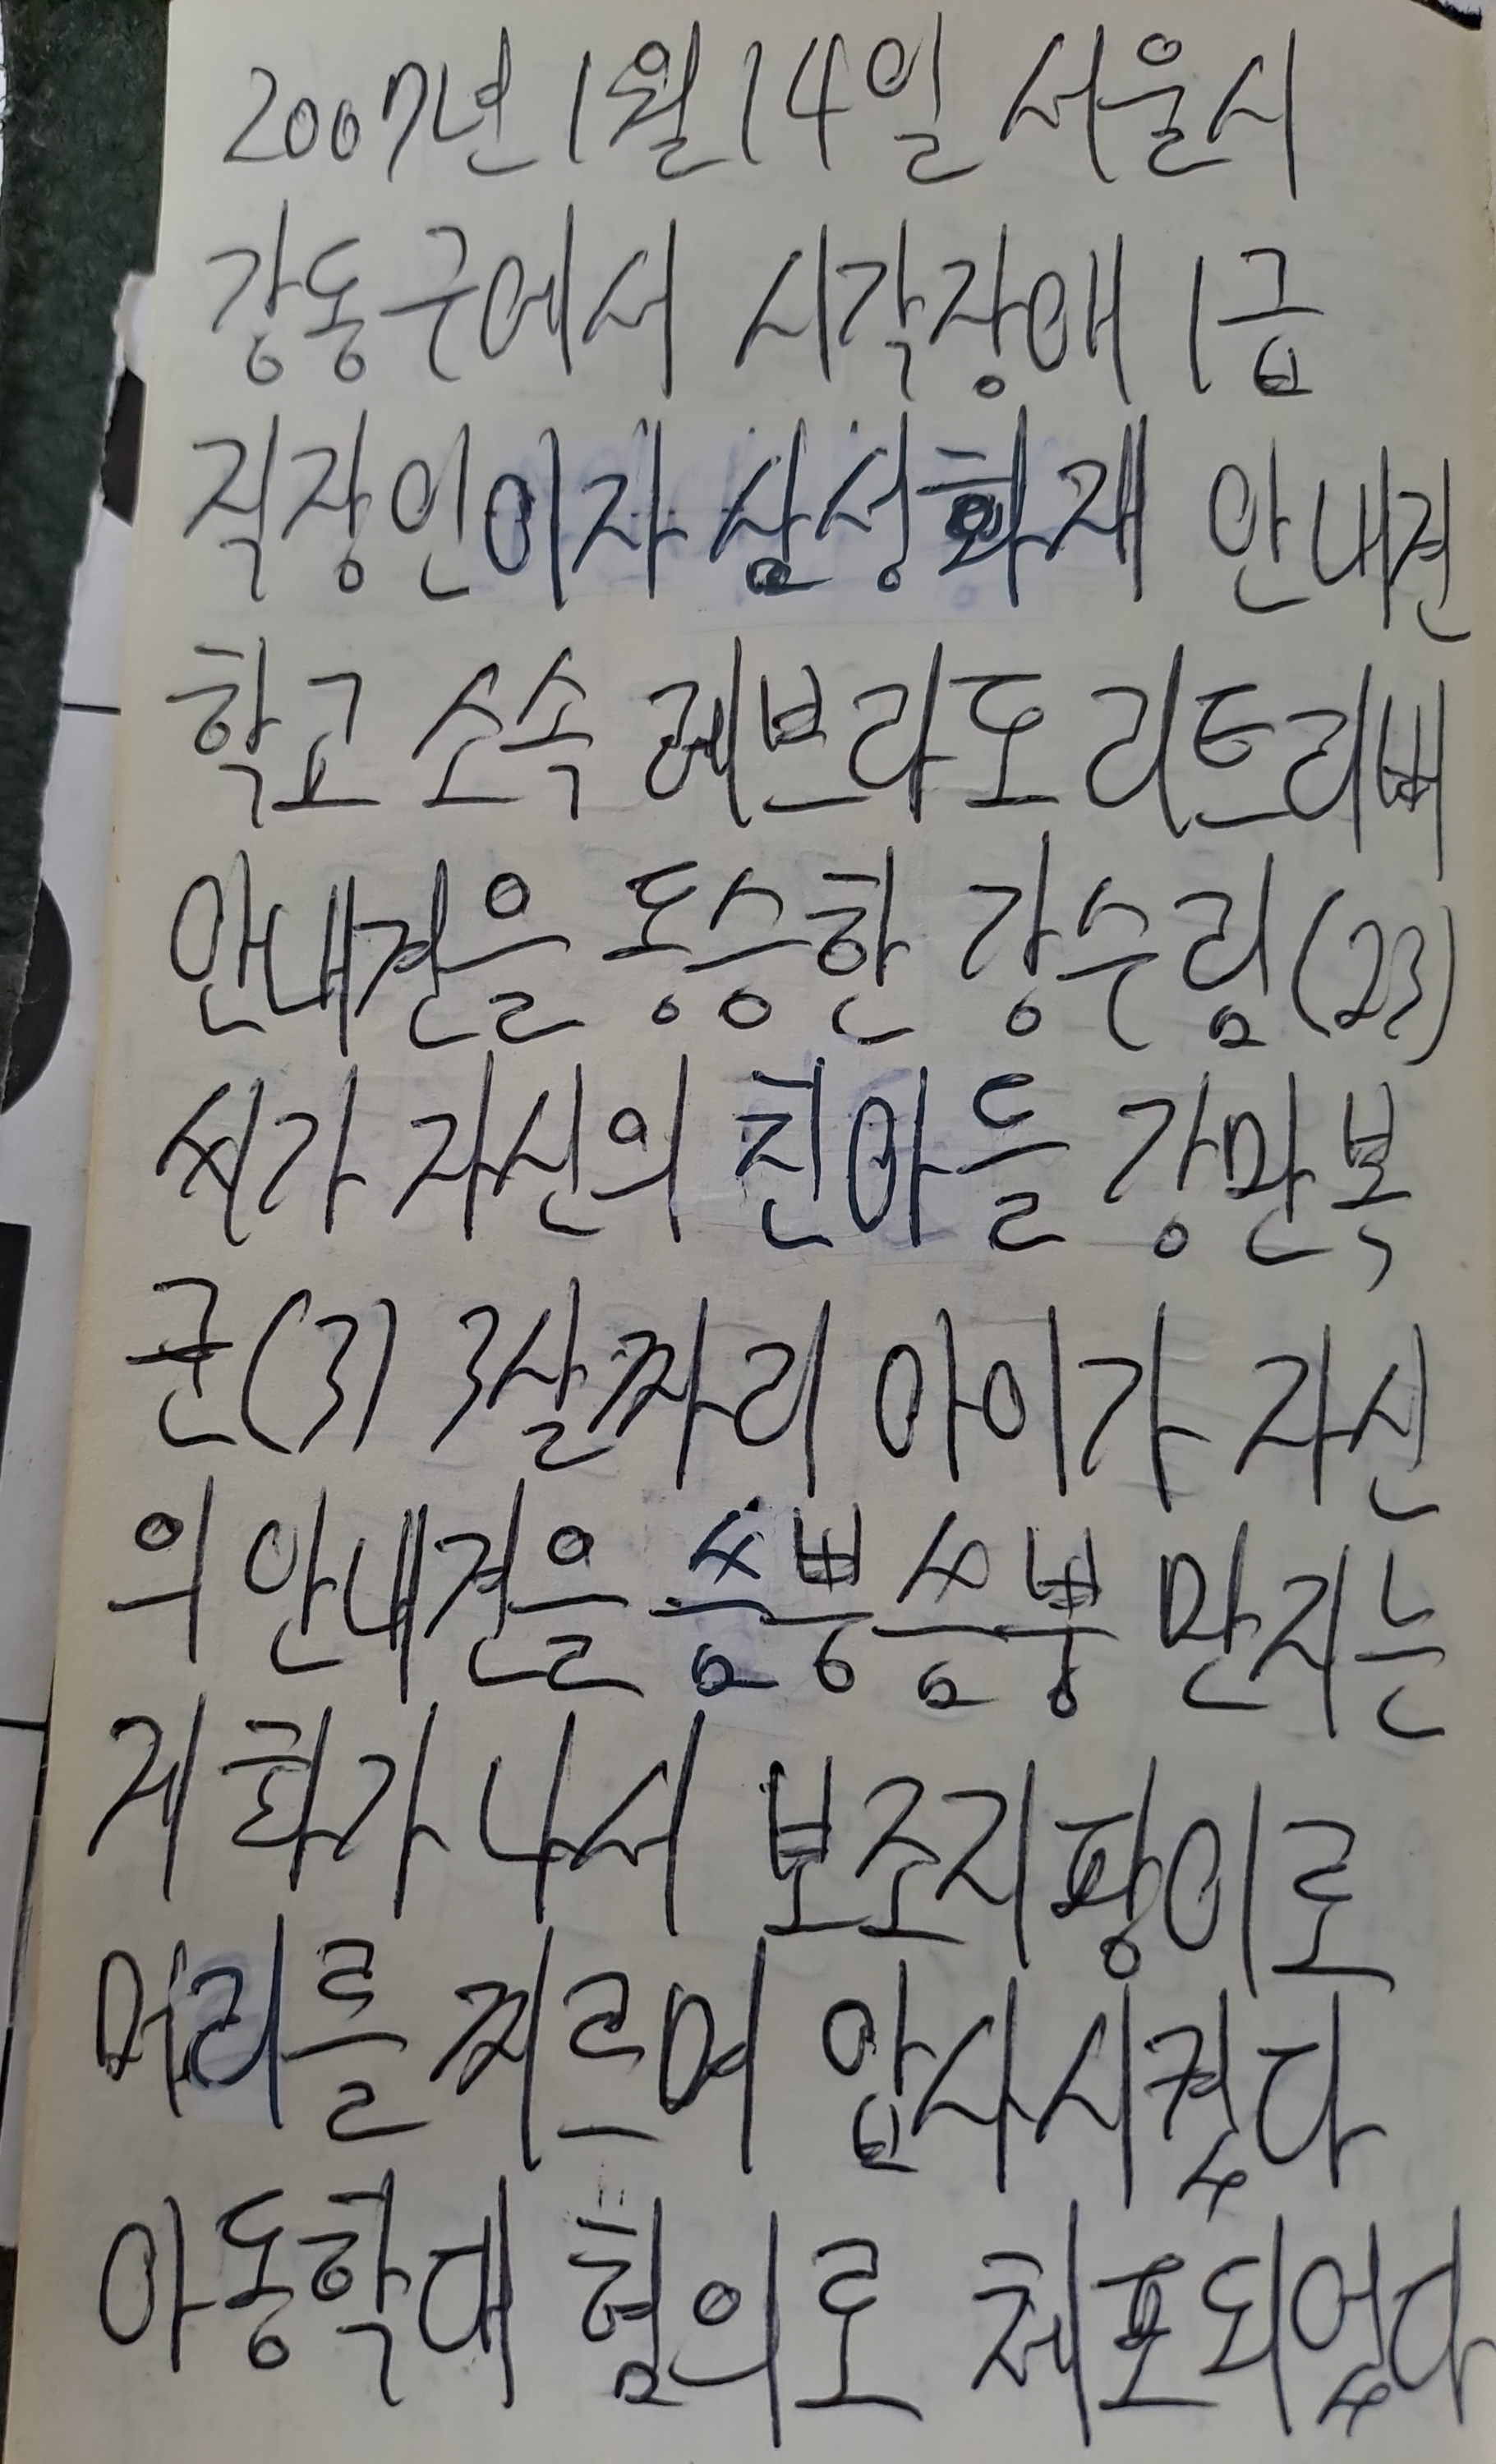 2007년 1월 14일 서울시
강동구에서 시각장애 1급
직장인이자 삼성화재 안내견
학교 소속 레브라도 리트리버
안내견을 동승한 강수림(23)
씨가 자신의 친아들 강만복
군(3) 3살짜리 아이가 자신
의 안내견을 쓤뿡쓤뿡 만지는
게 화가 나서 보조지팡이로
머리를 찌르며 압사시켰다
아동학대 혐의로 체포되었다